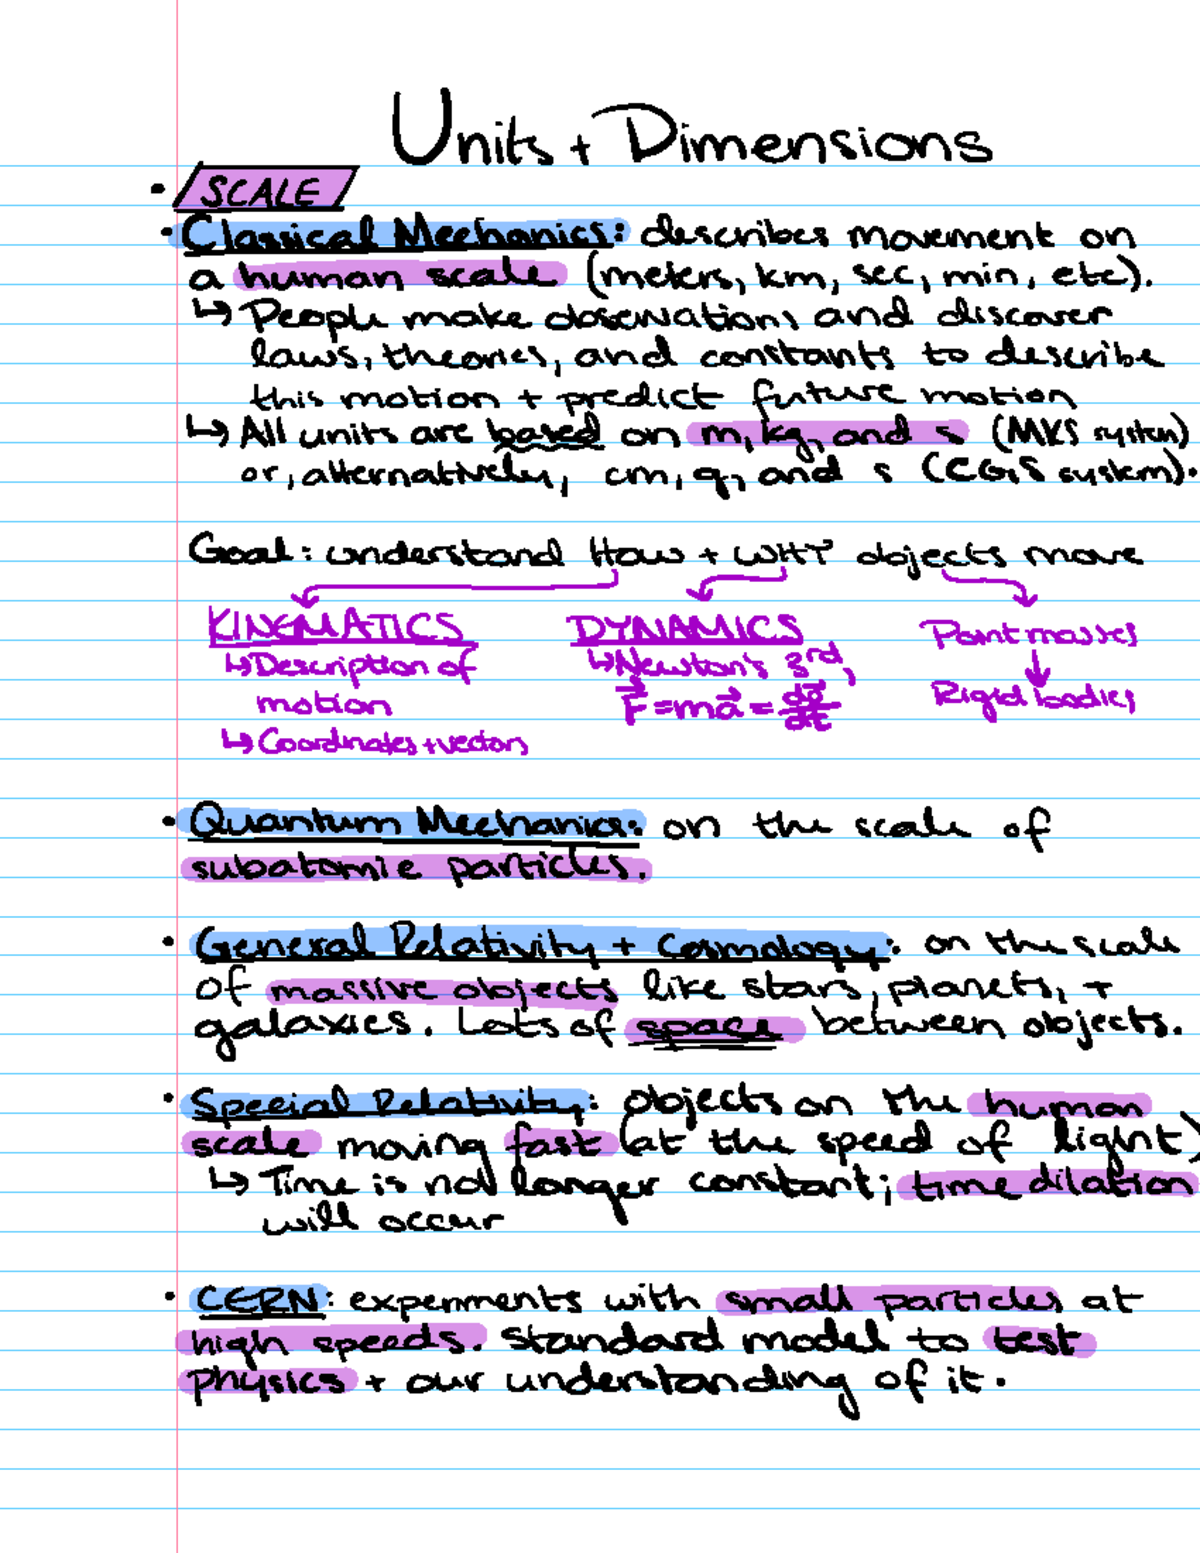 Units + Dimensions
• SCALE
• Classical Mechanics: describes movement on
a human scale (meters, km, sec, min, etc).
↳ People make observations and discover
laws, theories, and constants to describe
this motion + predict future motion
↳ All units are based on m, kg, and s (MKS system)
or, alternatively, cm, g, and s (CGS system).
Goal: understand How + WHY objects move
KINEMATICS DYNAMICS Point masses
↳ Description of ↳ Newton's 3rd, ↓
motion F⃗ = ma⃗ = dp⃗/dt Rigid bodies
↳ Coordinates + vectors
• Quantum Mechanics: on the scale of
subatomic particles.
• General Relativity + Cosmology: on the scale
of massive objects like stars, planets, +
galaxies. Lots of space between objects.
• Special Relativity: objects on the human
scale moving fast (at the speed of light)
↳ Time is no longer constant; time dilation
will occur
• CERN: experiments with small particles at
high speeds. Standard model to test
physics + our understanding of it.